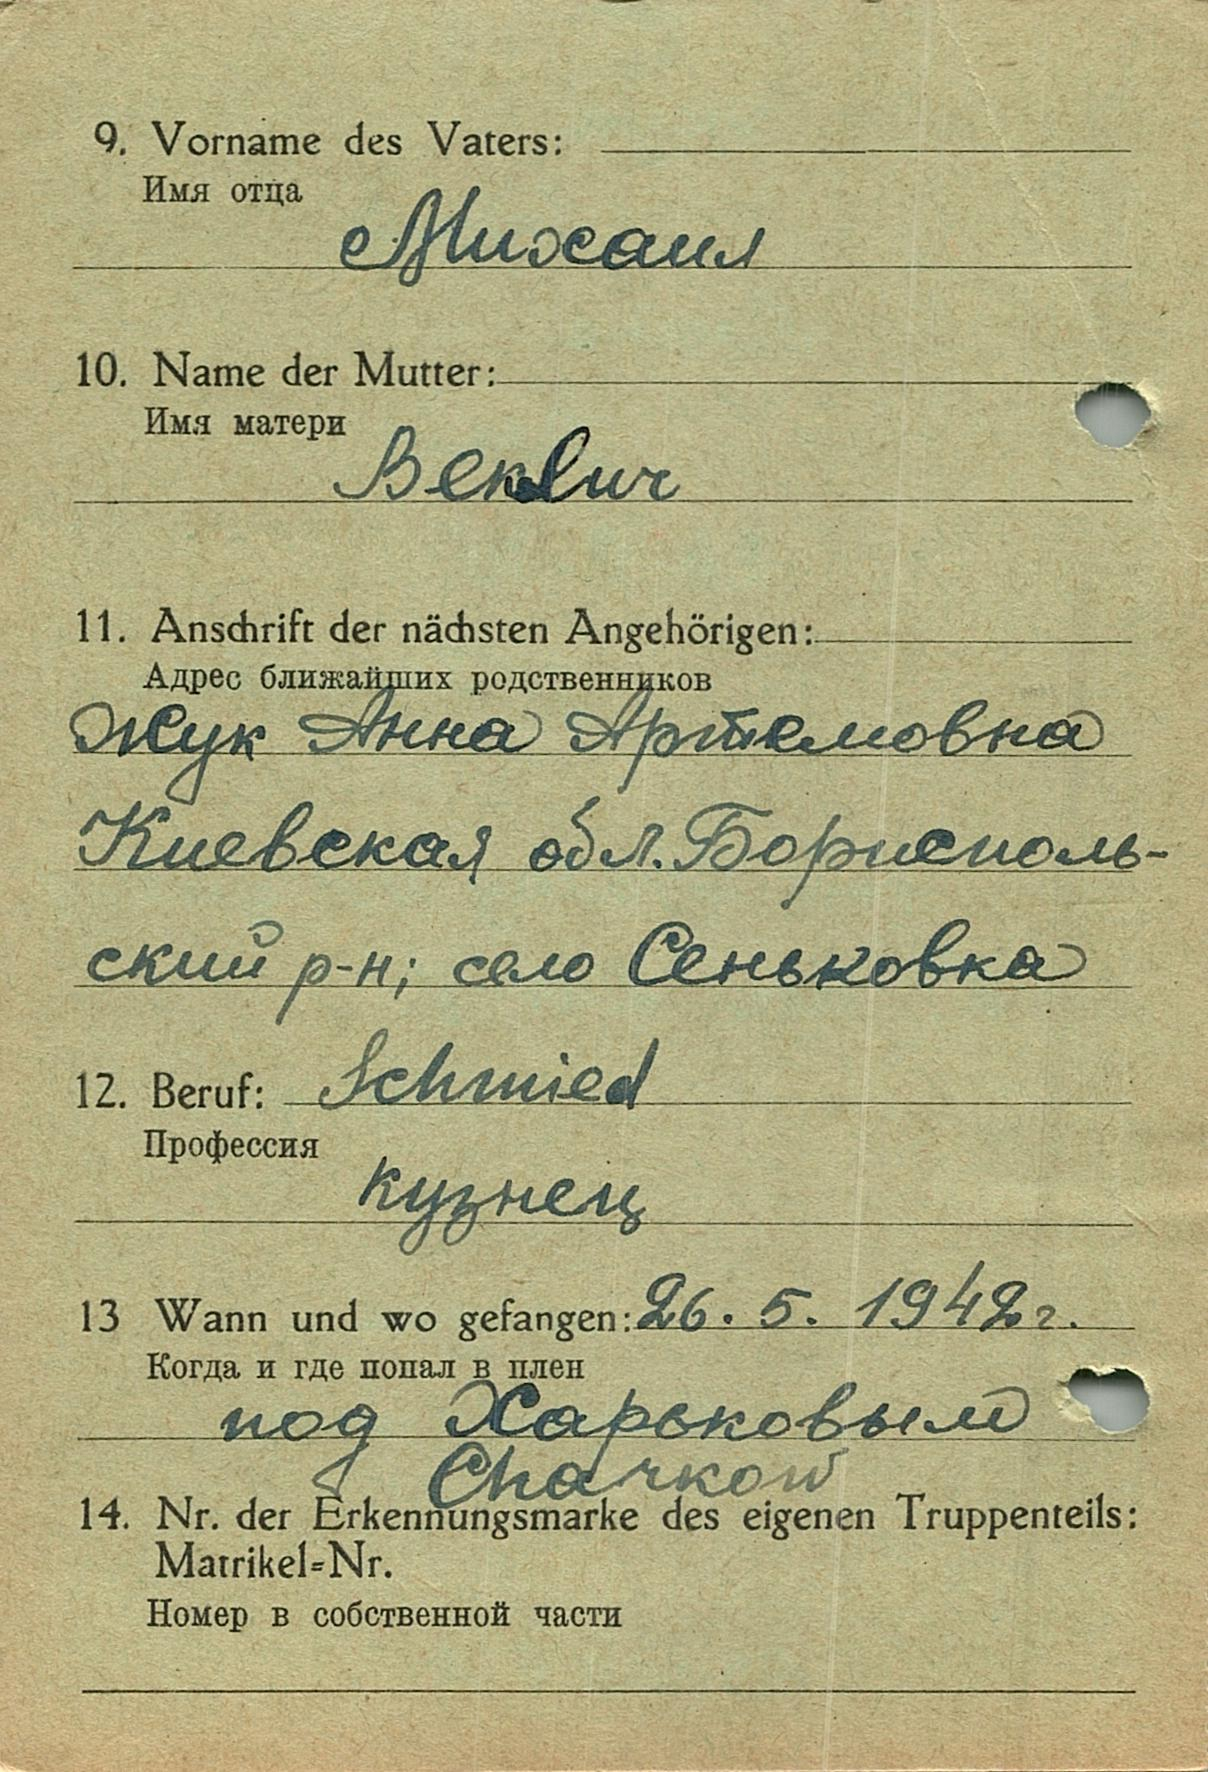 9. Vorname des Vaters:
Имя отца
Михаил
10. Name der Mutter:
Имя матери
11. Anschrift der nächsten Angehörigen:
Адрес ближайших родственников
Жук Анна Артемовна
Киевская обл. Бориcполь-
ский р-н; село Сеньковка
12. Beruf: Schmied
Профессия
кузнец
13 Wann und wo gefangen: 26. 5. 1942 г.
Когда и где попал в плен
под Харьковым
14. Nr. der Erkennungsmarke des eigenen Truppenteils:
Matrikel=Nr.
Номер в собственной части